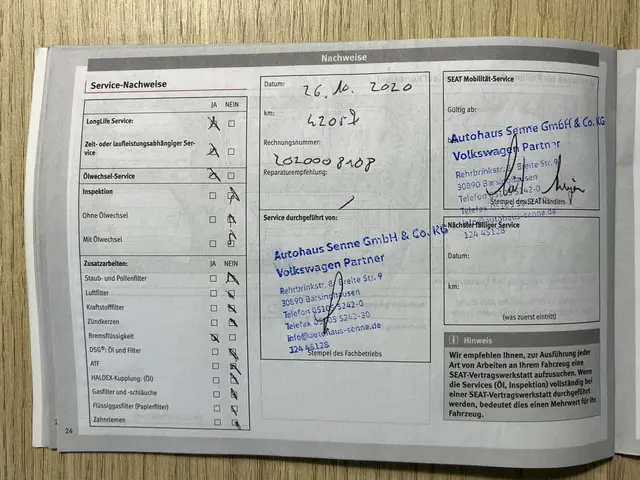 Nachweise
Service-Nachweise
JA NEIN
LongLife Service:
Zeit- oder laufleistungsabhängiger Ser-
vice
Ölwechsel-Service
Inspektion
Ohne Ölwechsel
Mit Ölwechsel
Zusatzarbeiten: JA NEIN
Staub- und Pollenfilter
Luftfilter
Kraftstofffilter
Zündkerzen
Bremsflüssigkeit
DSG®: Öl und Filter
ATF
HALDEX-Kupplung: (Öl)
Gasfilter und -schläuche
Flüssiggasfilter (Papierfilter)
Zahnriemen
24
Datum:
26.10.2020
km:
42057
Rechnungsnummer:
2020008108
Reparaturempfehlung:
Service durchgeführt von:
Autohaus Senne GmbH & Co. KG
Volkswagen Partner
Rehrbrinkstr. 8, Breite Str. 9
30890 Barsinghausen
Telefon 05105 5242-0
Telefax 05105 5242-30
info@autohaus-senne.de
124 45128
Stempel des Fachbetriebs
SEAT Mobilität-Service
Gültig ab:
Autohaus Senne GmbH & Co. KG
Volkswagen Partner
Rehrbrinkstr. 8, Breite Str. 9
30890 Barsinghausen
Telefon 05105 5242-0
Stempel des SEAT Händlers
Telefax
info@autohaus-senne.de
Nächster fälliger Service
124 45128
Datum:
km:
(was zuerst eintritt)
i Hinweis
Wir empfehlen Ihnen, zur Ausführung jeder
Art von Arbeiten an Ihrem Fahrzeug eine
SEAT-Vertragswerkstatt aufzusuchen. Wenn
die Services (Öl, Inspektion) vollständig bei
einer SEAT-Vertragswerkstatt durchgeführt
werden, bedeutet dies einen Mehrwert für Ihr
Fahrzeug.